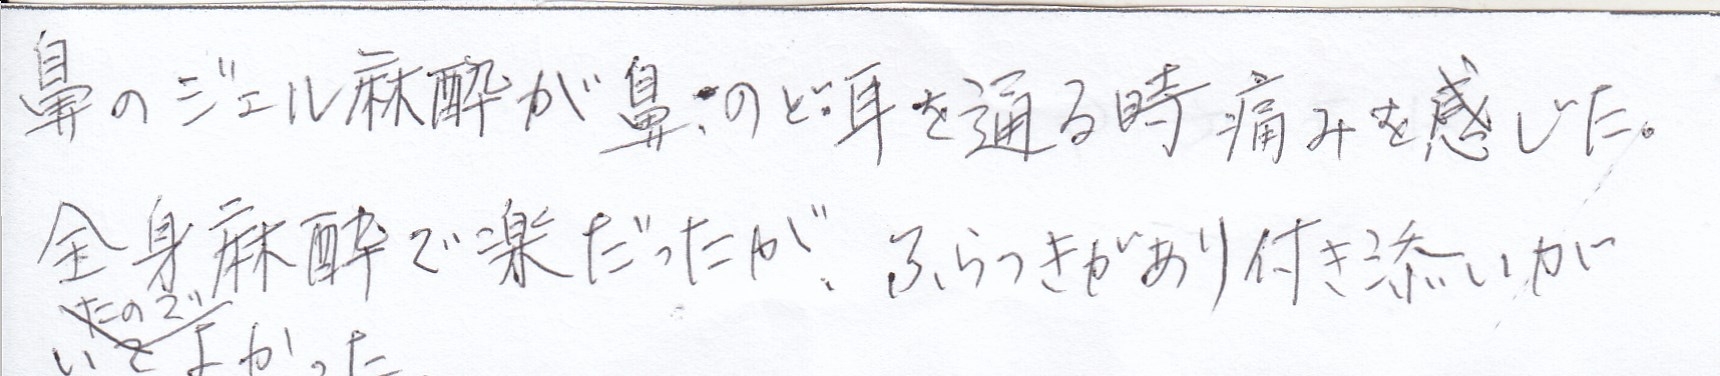 鼻のジェル麻酔が鼻、のど、耳を通る時痛みを感じた。
全身麻酔で楽だったが、ふらつきがあり付き添いが
いたのでよかった。